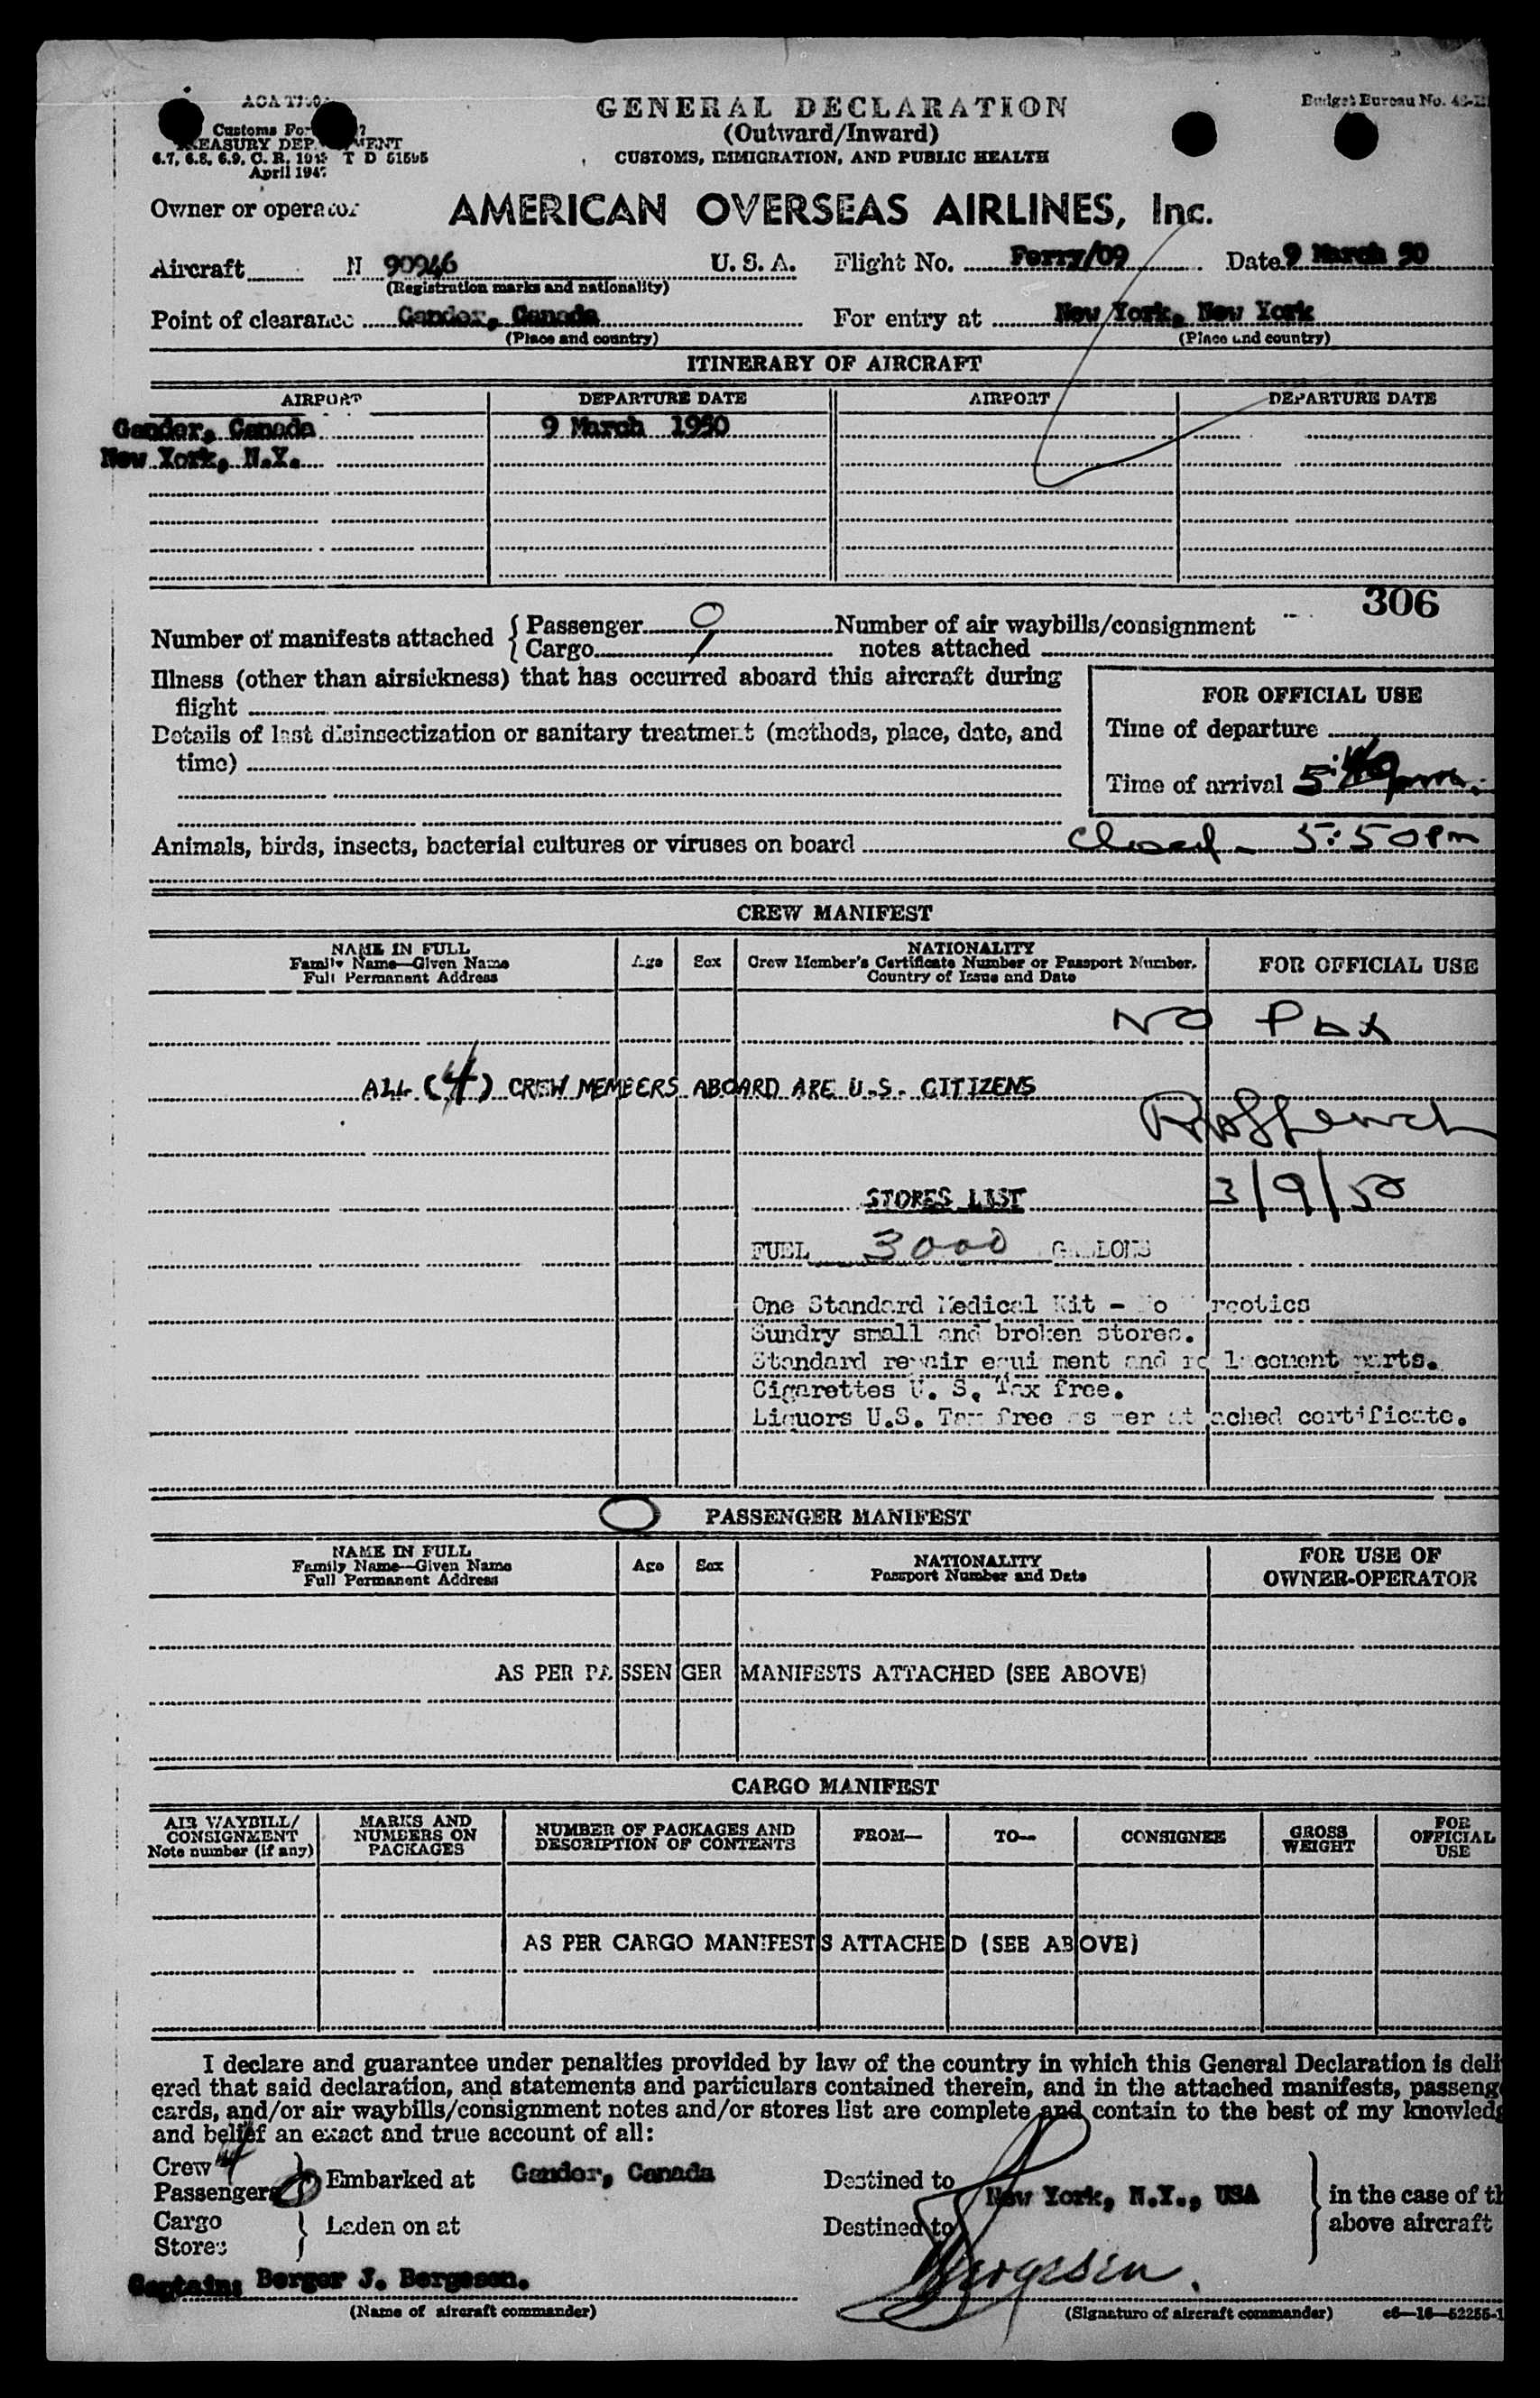 GENERAL DECLARATION
(Outward/Inward)
CUSTOMS, IMMIGRATION, AND PUBLIC HEALTH
Budget Bureau No.
Customs
TREASURY DEPARTMENT
6.7, 6.8, 6.9, C. R. T D 51595
April 1947
Owner or operator AMERICAN OVERSEAS AIRLINES, Inc.
Aircraft N 90946 U. S. A. Flight No. Ferry/09 Date 9 March 50
(Registration marks and nationality)
Point of clearance Gander, Canada For entry at New York, New York
(Place and country) (Place and country)
ITINERARY OF AIRCRAFT
AIRPORT DEPARTURE DATE AIRPORT DEPARTURE DATE
Gander, Canada 9 March 1950
New York, N.Y.
306
Number of manifests attached { Passenger 0 Number of air waybills/consignment
Cargo / notes attached
Illness (other than airsickness) that has occurred aboard this aircraft during
flight
FOR OFFICIAL USE
Details of last disinsectization or sanitary treatment (methods, place, date, and
time)
Time of departure
Time of arrival 5:40 pm.
Animals, birds, insects, bacterial cultures or viruses on board Closed - 5:50 Pm
CREW MANIFEST
NAME IN FULL
Family Name—Given Name
Full Permanent Address
Age Sex
NATIONALITY
Crew Member's Certificate Number or Passport Number,
Country of Issue and Date
FOR OFFICIAL USE
NO PAX
ALL (4) CREW MEMBERS ABOARD ARE U.S. CITIZENS
STORES LIST 3/9/50
FUEL 3000 GALLONS
One Standard Medical Kit - No Narcotics
Sundry small and broken stores.
Standard repair equipment and replacement parts.
Cigarettes U. S. Tax free.
Liquors U.S. Tax free as per attached certificate.
0 PASSENGER MANIFEST
NAME IN FULL
Family Name—Given Name
Full Permanent Address
Age Sex
NATIONALITY
Passport Number and Date
FOR USE OF
OWNER-OPERATOR
AS PER PASSENGER MANIFESTS ATTACHED (SEE ABOVE)
CARGO MANIFEST
AIR WAYBILL/
CONSIGNMENT
Note number (if any)
MARKS AND
NUMBERS ON
PACKAGES
NUMBER OF PACKAGES AND
DESCRIPTION OF CONTENTS
FROM— TO— CONSIGNEE
GROSS
WEIGHT
FOR
OFFICIAL
USE
AS PER CARGO MANIFESTS ATTACHED (SEE ABOVE)
I declare and guarantee under penalties provided by law of the country in which this General Declaration is deliv
ered that said declaration, and statements and particulars contained therein, and in the attached manifests, passeng
cards, and/or air waybills/consignment notes and/or stores list are complete and contain to the best of my knowledg
and belief an exact and true account of all:
Crew 4
Passengers 0 } Embarked at Gander, Canada Destined to New York, N.Y., USA
Cargo
Stores } Laden on at Destined to
} in the case of th
above aircraft
Captain: Berger J. Bergeson. Bergesen.
(Name of aircraft commander) (Signature of aircraft commander) c6—16—52255-1